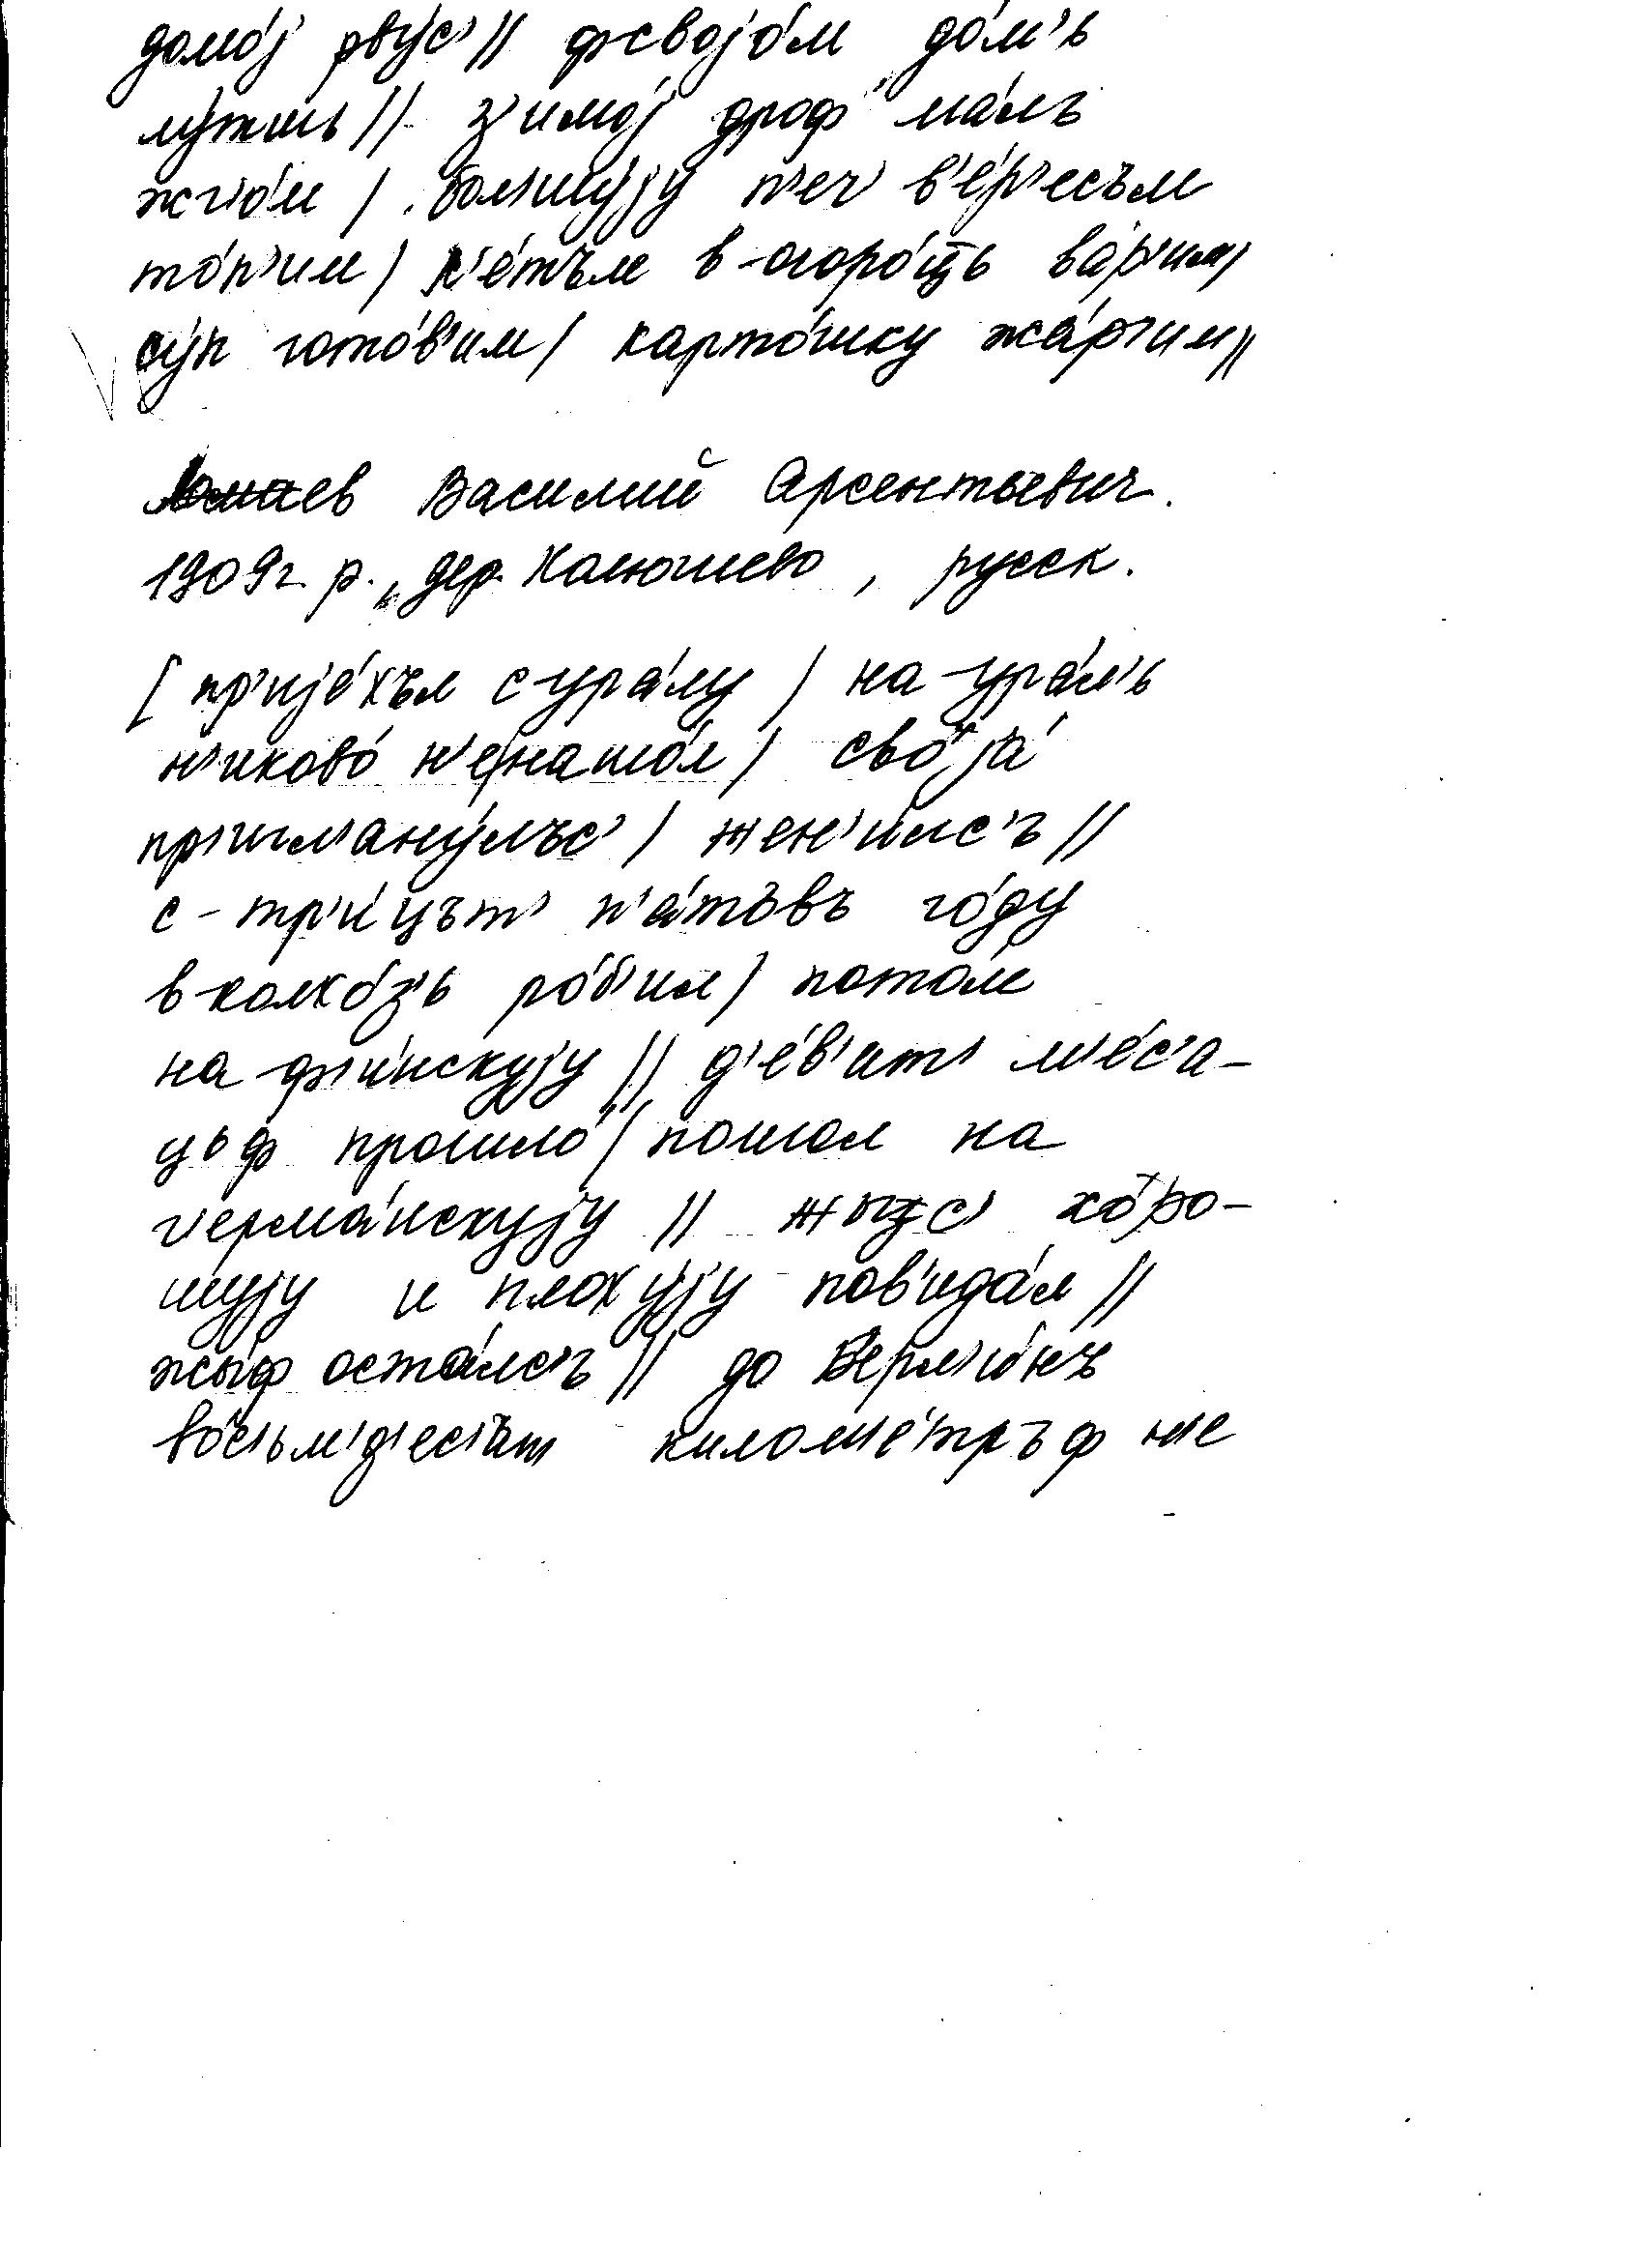 домо́j рву́с’ // фсвоjо́м до́м’ь
лу́тшь // з’имо́j дроф ма́лъ
жг’о́м / бол’шу́jу п’еч’ в’е́р’есъм
то́п’им / л’е́тъм в-огоро́ць ва́р’им /
су́п гото́в’им / карто́шку жа́р’им //
Василий Арсентьевич.
1909 г. р., дер. Халюшево, русск.
[ пр’иjе́хъл с ура́лу / на-ура́л’ь
н’иково́ н’енашо́л / своjа́
пр’игл’ану́лъс’ / жен’и́лс’ъ //
с-тр’и́цът’ п’а́тъвъ го́ду
в-колхо́з’ь ро́б’ил / пото́м
на-ф’и́нскуjу // д’е́в’ит’ м’е́с’а-
цьф прошло́ / пошол на
г’ерма́нскуjу // жыз’с’ хо́ро-
шуjу и плоху́jу пов’ида́л //
жы́ф оста́лс’ъ // до Берл’и́нъ
во́с’ьм’д’ес’ит киломе́тръф н’е